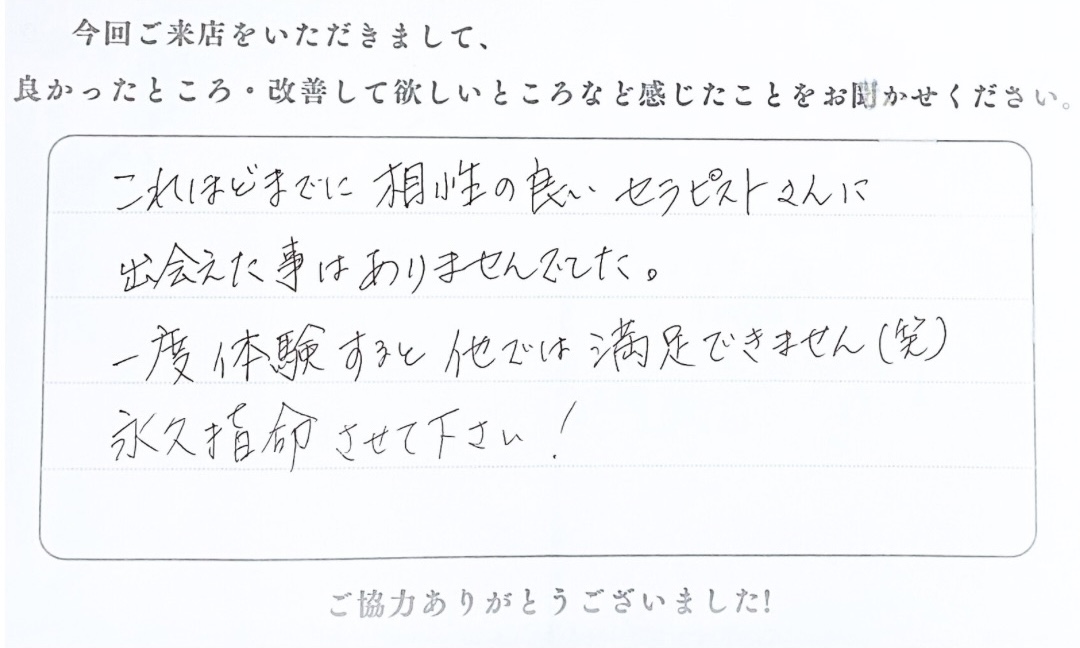 今回ご来店をいただきまして、
良かったところ・改善して欲しいところなど感じたことをお聞かせください。
これほどまでに相性の良いセラピストさんに
出会えた事はありませんでした。
一度体験すると他では満足できません(笑)
永久指命させて下さい!
ご協力ありがとうございました!